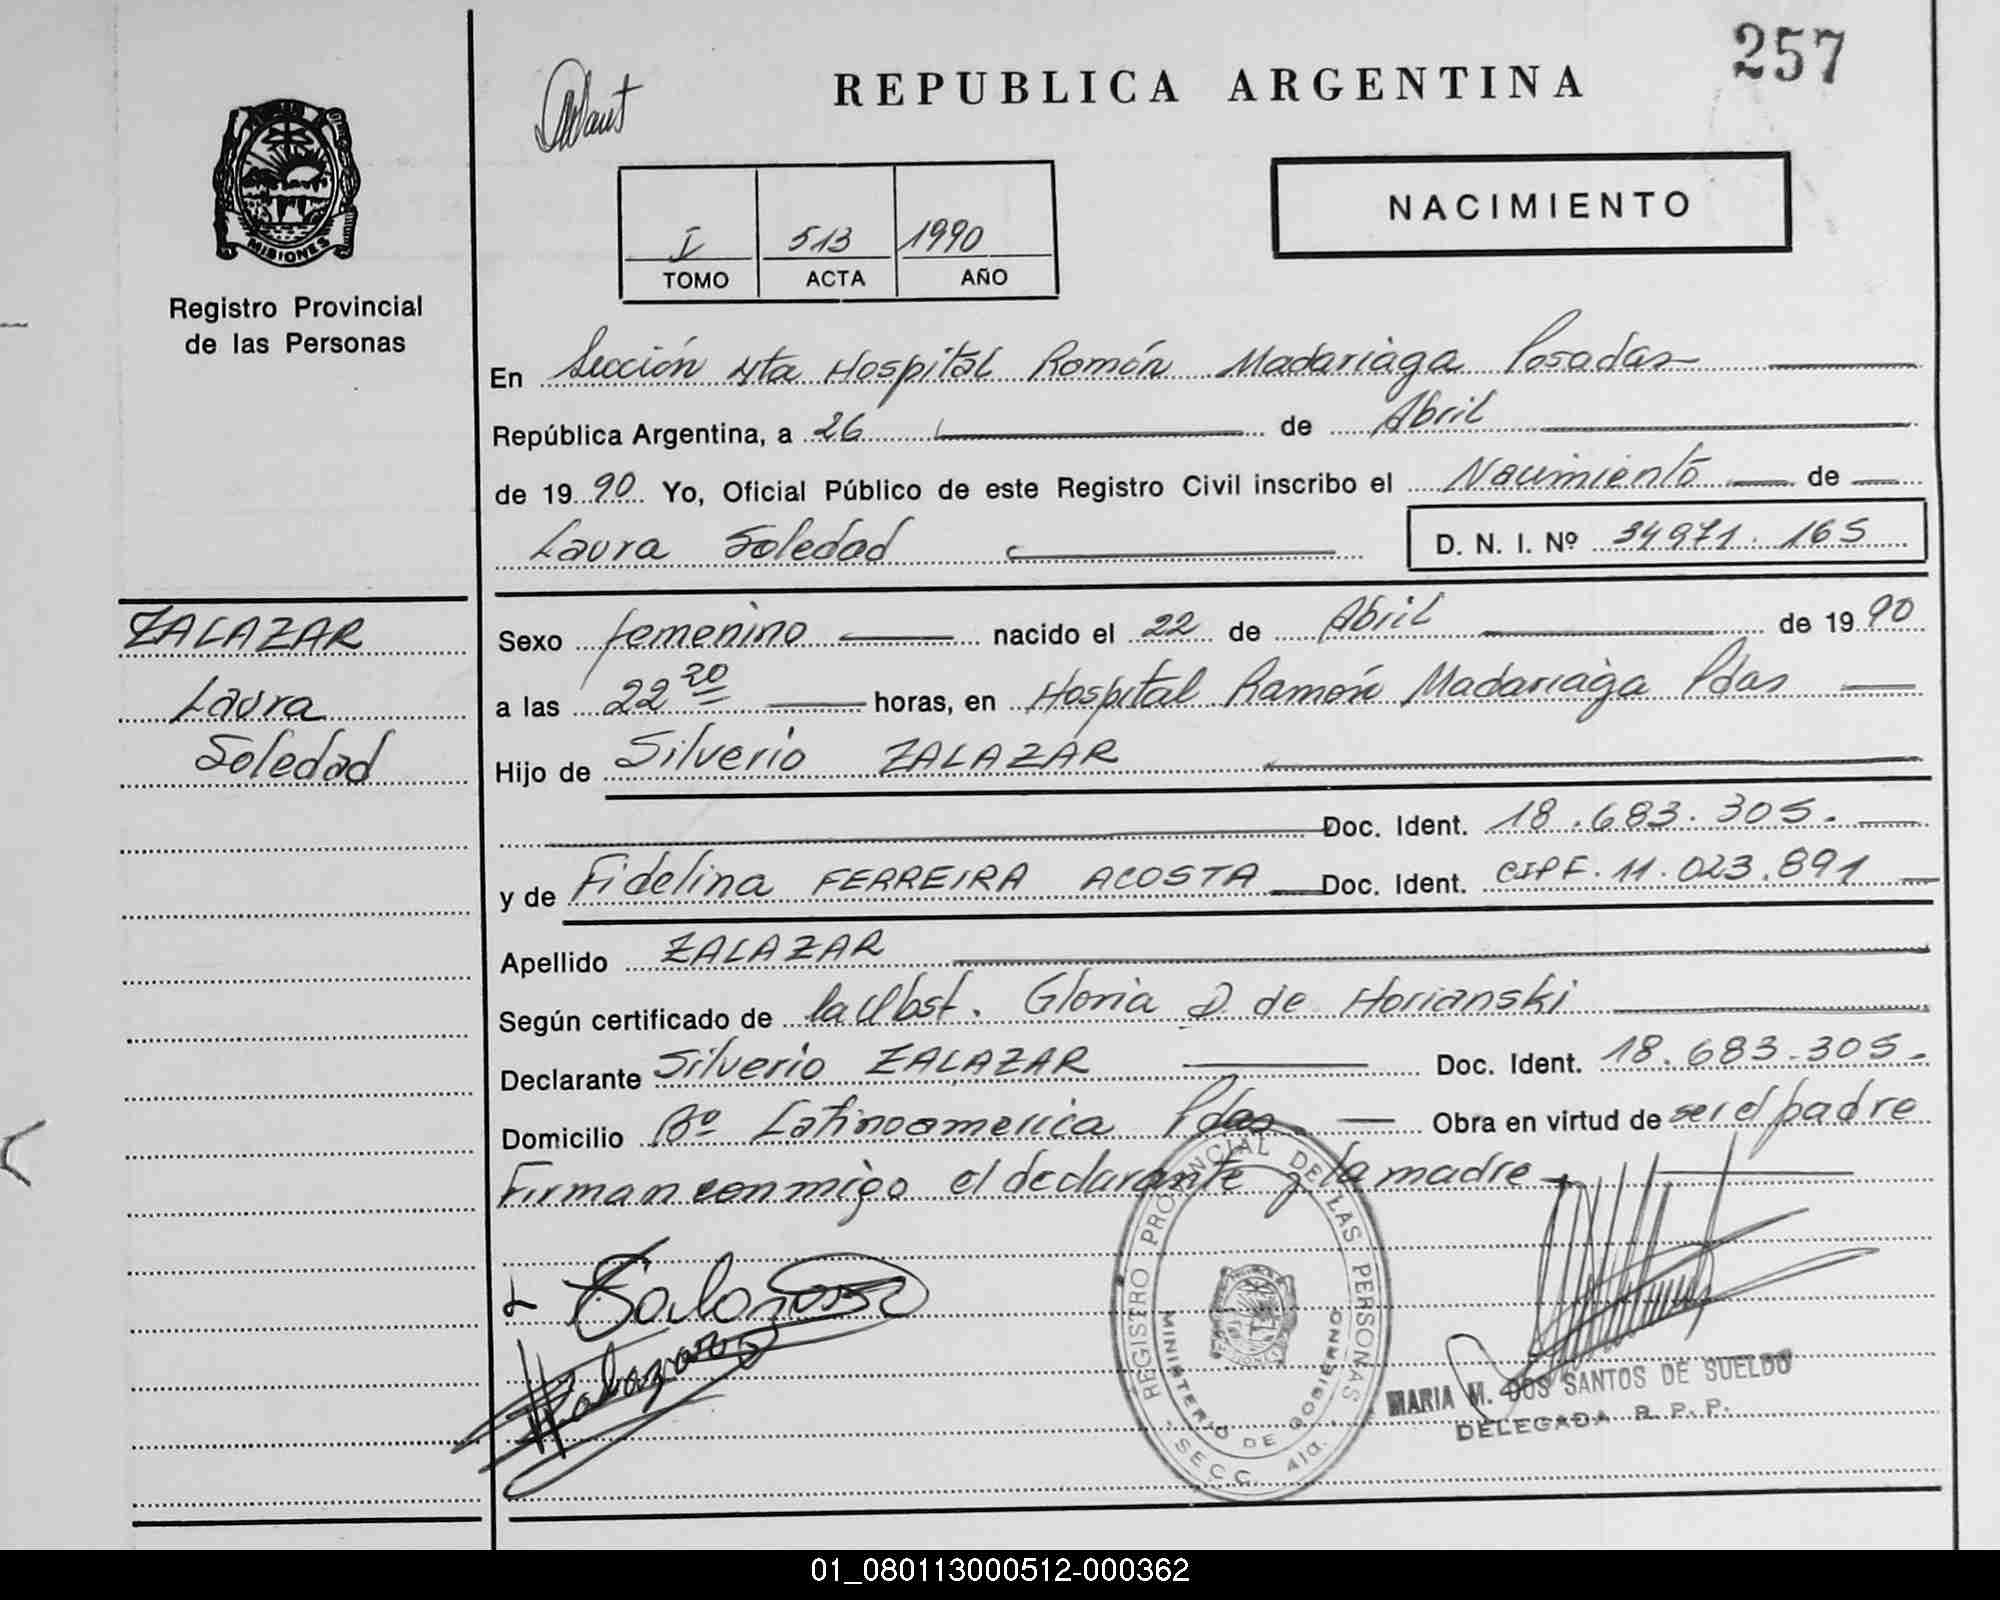 257
REPUBLICA ARGENTINA
MISIONES
Registro Provincial
de las Personas
NACIMIENTO
I 513 1990
TOMO ACTA AÑO
En Sección 4ta Hospital Ramón Madariaga Posadas
República Argentina, a 26 de Abril
de 1990 Yo, Oficial Público de este Registro Civil inscribo el Nacimiento de
Laura Soledad D. N. I. Nº 34971.165
ZALAZAR
Laura
Soledad
Sexo femenino nacido el 22 de Abril de 1990
a las 22 20 horas, en Hospital Ramón Madariaga Pdas
Hijo de Silverio ZALAZAR
Doc. Ident. 18.683.305.
y de Fidelina FERREIRA ACOSTA Doc. Ident. CIPF. 11.023.891
Apellido ZALAZAR
Según certificado de la Obst. Gloria D de Horianski
Declarante Silverio ZALAZAR Doc. Ident. 18.683.305.
Domicilio Bº Latinoamerica Pdas Obra en virtud de ser el padre
Firman conmigo el declarante y la madre
REGISTRO PROVINCIAL DE LAS PERSONAS
MINISTERIO DE GOBIERNO
SECC. 4ta.
MARIA M. DOS SANTOS DE SUELDO
DELEGADA R. P. P.
01_080113000512-000362